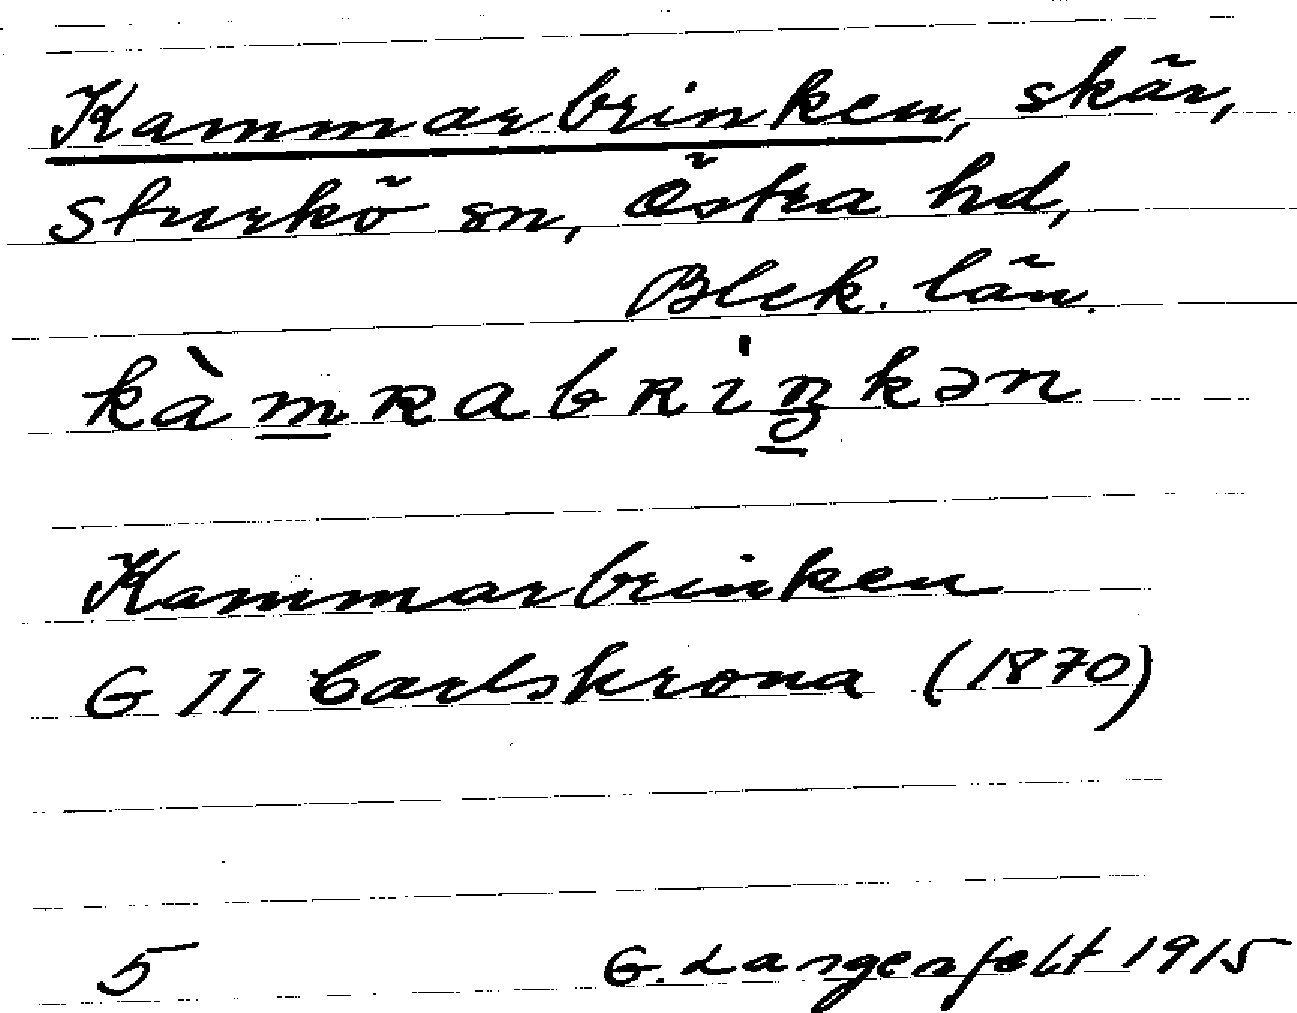 Kammarbrinken, skär,
Sturkö sn, Östra hd,
Blek. län.
kàm̲ʀabʀiŋ̲kən
Kammarbrinken
G 11 Carlskrona (1870)
5 G. Langenfelt 1915